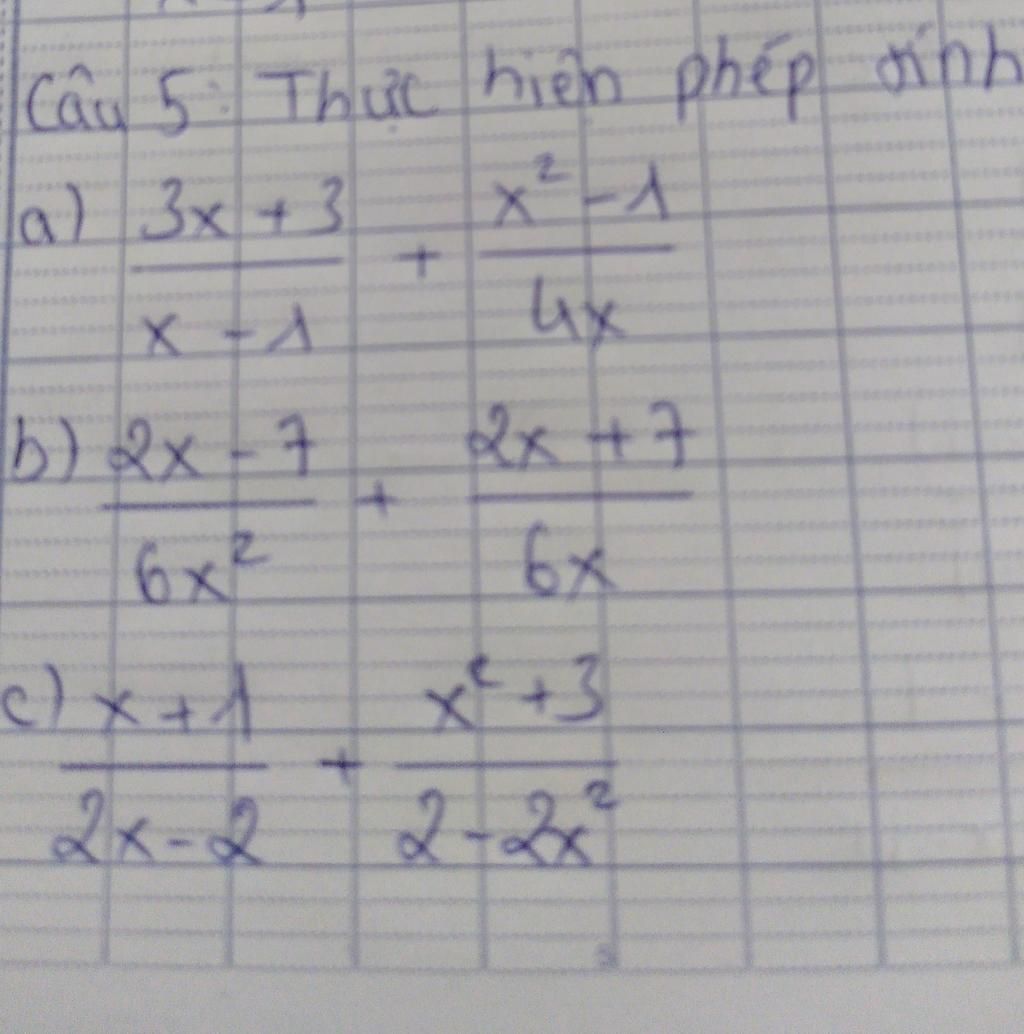 Câu 5: Thực hiện phép tính
a) \frac{3x + 3}{x - 1} + \frac{x² - 1}{4x}
b) \frac{2x - 7}{6x²} + \frac{2x + 7}{6x}
c) \frac{x + 1}{2x - 2} + \frac{x² + 3}{2 - 2x²}